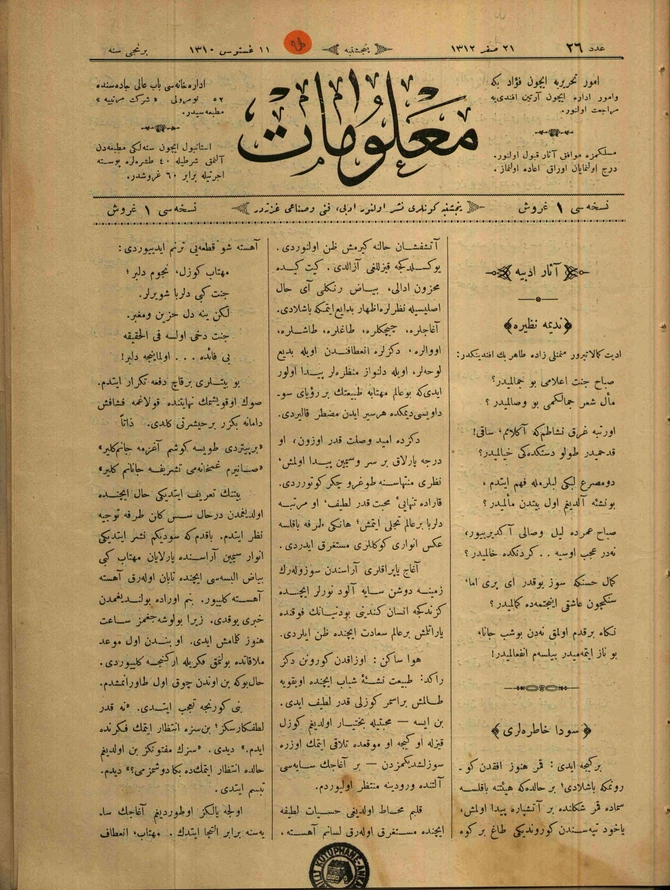 عدد ٢٦
٢١ صفر ١٣١٢
پنجشنبه
١١ غستوس ١٣١٠
برنجی سنه
امور تحریریه ایچون فؤاد بكه
وامور اداره ایچون آرتین افندی‌یه
مراجعت اولنور.
مسلكمزه موافق آثار قبول اولنور.
درج اولنمایان اوراق اعاده اولنماز.
معلومات
اداره‌خانه‌سی باب عالی جاده‌سنده
٥٢ نومرولی « شركت مرتبیه »
مطبعه‌سیدر.
استانبول ایچون سنه‌لكی مطبعه‌دن
آلنمق شرطیله ٤٠ طشره‌لره پوسته
اجرتیله برابر ٦٠ غروشدر.
نسخه‌سی ١ غروش
پنجشنبه كونلری نشر اولنور ادبی، فنی وصناعی غزته‌در
نسخه‌سی ١ غروش
آثار ادبیه
ندیمه نظیره
ادیب كمالاتپرور منمنلی زاده طاهر بك افندینكدر:
صباح جنت اعلامی بو جمالمیدر؟
مأل شعر جمالكمی بو وصالمیدر ؟
اورتبه غرق نشاطم‌كه آكلامم، ساقی!
قدحمیدر طولو دستكده‌كی خیالمیدر؟
دومصرع لبكی لبلرمله فهم ایتدم ،
بونشئه آلدیغم اول بیتدن مألمیدر ؟
صباح عمرده لیل وصالی آكدیرییور،
نه‌در عجب اوسیه . . كردنكده خالمیدر ؟
كمال حسنكه سوز یوقدر ای پری اما،
ستمكچون عاشقی اینجتمه‌ده كمالمیدر ؟
نكاه برقدم اولمق نه‌دن بوشب جانا،
بو ناز ایتمه‌میدر بیلسه‌م انفعالمیدر!
سودا خاطره‌لری
بركیجه ایدی : قمر هنوز افقدن كو -
رونمكه باشلادی! برحالده‌كه هیئتنه باقلسه
سماده قمر شكلنده بر آتشپاره پیدا اولمش،
یاخود تپه‌سندن كوروندیكی طاغ بر كوه
آتشفشان حالنه كیرمش ظن اولنوردی.
یوكسلدكجه قیزللغی آزالدی . كیت كیده
محزون ادالی، بیاض رنكلی آی حال
اصلیسیله نظرلره اظهار بدایع ایتمكه باشلادی.
آغاجلره، چیچكلره، طاغلره، طاشلره،
اووالره، دكزلره انعطافندن اویله بدیع
لوحه‌لر، اویله دلنواز منظره‌لر پیدا اولور
ایدی‌كه بوعالم مهتابه طبیعتك بر رؤیای سو-
داویسی‌دیمكده هرسیر ایدن مضطر قالیردی.
دكزده امید وصلت قدر اوزون، او
درجه پارلاق بر سر وسیمین پیدا اولمش،
نظری منتهاسنه طوغرو چكر كوتورردی.
قاراده تنهایئ محبت قدر لطیف، او مرتبه
دلربا برعالم تجلی ایتمش، هانكی طرفه باقلسه
عكس انواری كوكللری مستغرق ایدردی.
آغاج یاپراقلری آراسندن سوزوله‌رك
زمینه دوشن سایه آلود نورلر ایچنده
كزندكجه انسان كندینی بودنیانك فوقنده
یارادلمش برعالم سعادت ایچنده ظن ایلردی.
هوا ساكن : اوزاقدن كورونن دكز
راكد: طبیعت نشئۀ شباب ایچنده اویقویه
طالمش براسمر كوزلی قدر لطیف ایدی.
بن ایسه — محبتیله بختیار اولدیغم كوزل
قیزله او كیجه او موقعده تلاقی ایتمك اوزره
سوزلشدیكمزدن — بر آغاجك سایه‌سی
آلتنده ورودینه منتظر اولیوردم.
قلبم محاط اولدیغی حسیات لطیفه
ایچنده مستغرق اوله‌رق لسانم آهسته ،
آهسته شو قطعه‌یی ترنم ایدییوردی :
مهتاب كوزل، نجوم دلبر ؛
جنت كبی دلربا شویرلر.
لكن ینه دل حزین ومغبر.
جنت دخی اولسه فی الحقیقه
بی فائده . . . اولماینجه دلبر!
بو بیتلری برقاچ دفعه تكرار ایتدم.
صوك اوقویشمك نهایتنده قولاغمه فشافش
دامانه بكزر برحیشرتی كلدی. ذاتاً
«برپیتردی طویسه كوشم آغزمه جانم‌كلیر»
«صانیرم غمخانه‌می تشریفه جانانم كلیر»
بیتنك تعریف ایتدیكی حال ایچنده
اولدیغمدن درحال سس كلن طرفه توجیه
نظر ایتدم. باقدم‌كه سودیكم نشر ایتدیكی
انوار سیمین آراسنده پارلایان مهتاب كبی
بیاض البسه‌سی ایچنده تابان اوله‌رق آهسته
آهسته كلیور. بنم اوراده بولندیغمدن
خبری یوقدی. زیرا بولوشه‌جغمز ساعت
هنوز كلمامش ایدی. او بندن اول موعد
ملاقاتده بولنمق فكریله اركنجه كلییوردی.
حال‌بوكه بن اوندن چوق اول طاورانمشدم.
بنی كورنجه تعجب ایتدی. «نه قدر
لطفكارسكز! بن‌سزه انتظار ایتمك فكرنده
ایدم.» دیدی. «سزك مفتونكز بن اولدیغم
حالده انتظار ایتمك‌ده بكا دوشمزمی؟» دیدم.
تبسم ایتدی.
اولجه یالكز اوطوردیغم آغاجك سا-
یه‌سنه برابر التجا ایتدك . مهتاب، انعطاف